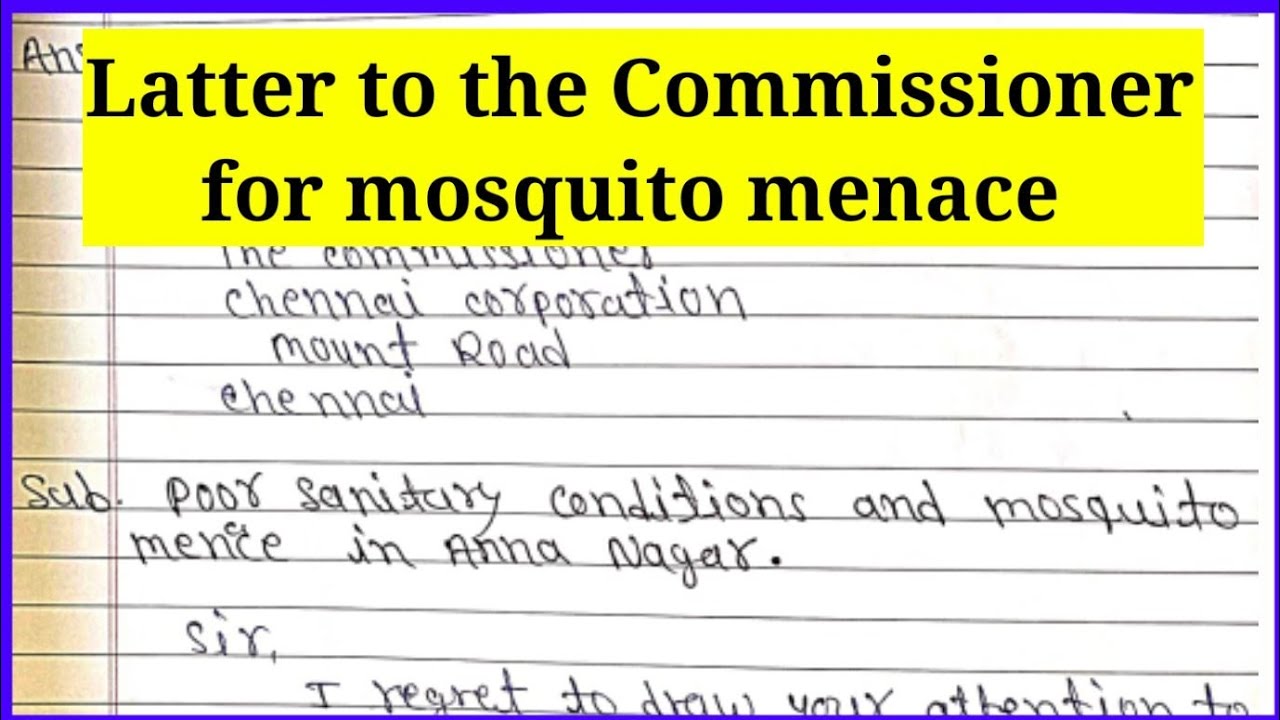 Ans
Latter to the Commissioner
for mosquito menace
The commissioner
chennai corporation
mount Road
chennai
Sub. poor sanitary conditions and mosquito
mence in Anna Nagar.
Sir,
I regret to draw your attention to